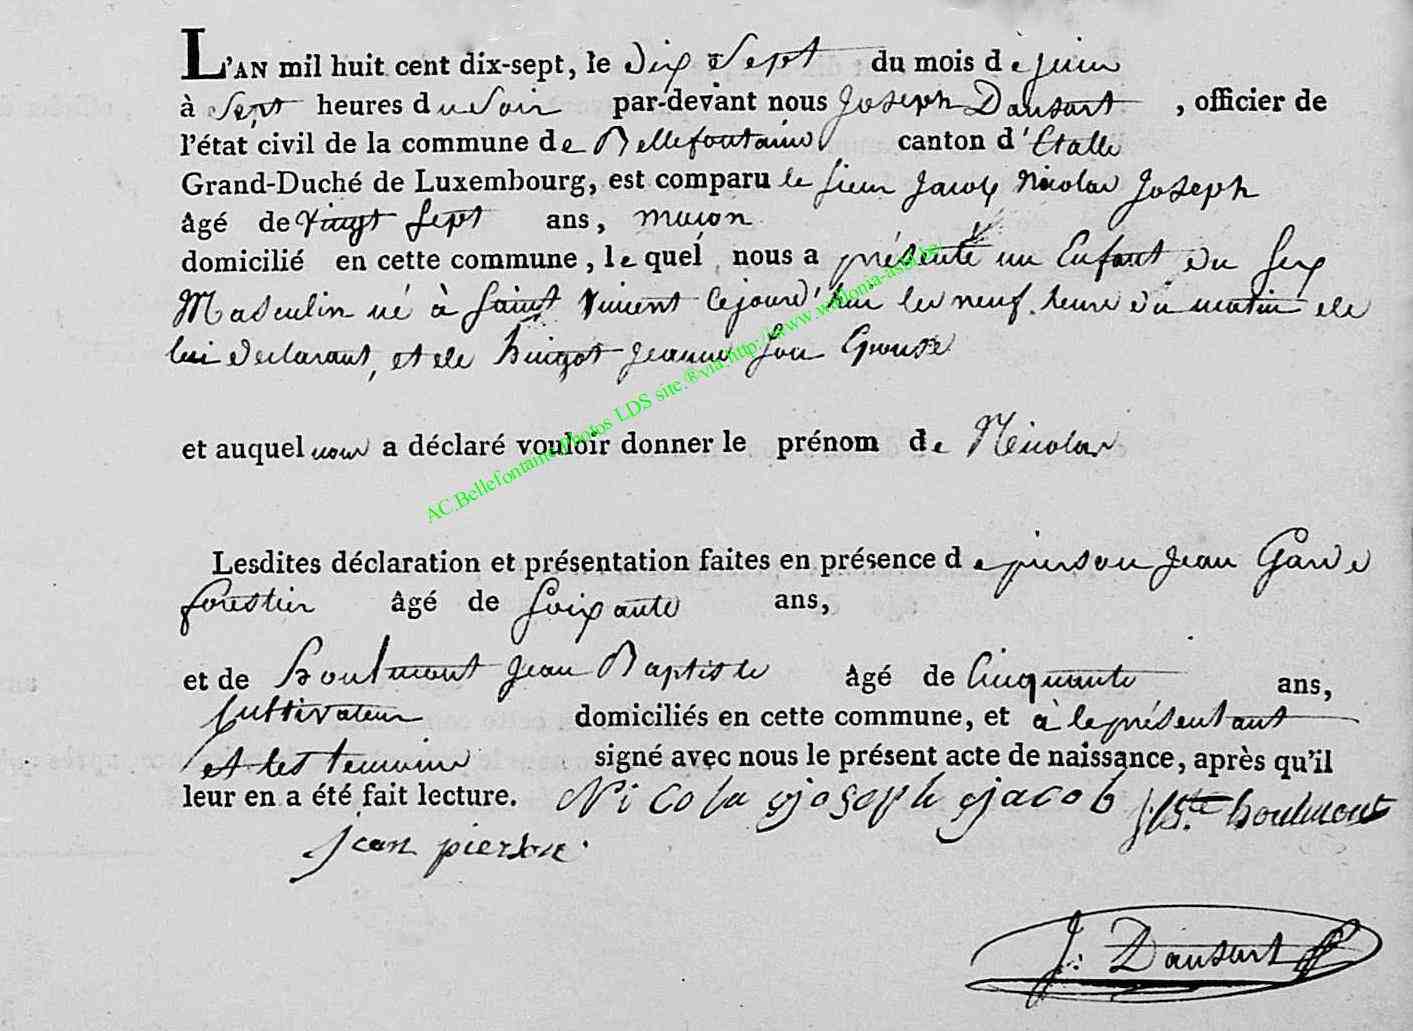 L'AN mil huit cent dix-sept, le dix Sept du mois de juin
à Sept heures du Soir par-devant nous Joseph Dansart, officier de
l'état civil de la commune de Bellefontaine canton d'Etalle
Grand-Duché de Luxembourg, est comparu le Sieur Jacob Nicolas Joseph
âgé de Vingt Sept ans, maçon
domicilié en cette commune, lequel nous a présenté un Enfant du Sex
Masculin né à Saint Vincent Cejourd'hui les neuf heure du matin de
lui declarant, et de hingot Jeanne Son Epouse
et auquel nous a déclaré vouloir donner le prénom de Nicolas
Lesdites déclaration et présentation faites en présence de pierson Jean Garde
forestier âgé de Soixante ans,
et de houlmont Jean Baptiste âgé de Cinquante ans,
Cultivateur domiciliés en cette commune, et à le présentant
et les temoins signé avec nous le présent acte de naissance, après qu'il
leur en a été fait lecture. Nicola joseph jacob J Bte houlmont
jean pierson
J: Dansart
AC.Bellefontaine photos LDS site.®via.http://www.wallonia-asbl.be